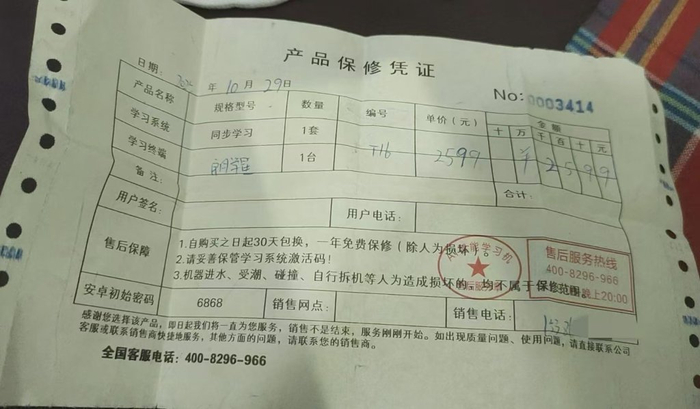 产品保修凭证
日期: 年 10 月 29 日
No: 0003414
产品名称 规格型号 数量 编号 单价(元) 金额
十 万 千 百 十 元
学习系统 同步学习 1套
学习终端 1台 T16 2599 ¥ 2 5 9 9
备注: 合计:
用户签名: 用户电话:
售后保障
1.自购买之日起30天包换,一年免费保修(除人为损坏)。
2.请妥善保管学习系统激活码!
3.机器进水、受潮、碰撞、自行拆机等人为造成损坏的,均不属于保修范围。
学习机
售后服务热线
400-8296-966
晚上20:00
安卓初始密码 6868 销售网点: 销售电话:
感谢您选择该产品,即日起我们将一直为您服务,销售不是结束,服务刚刚开始。如出现质量问题、使用问题,请直接联系公司
客服或联系销售商快捷地服务,其他方面的问题,请联系您的销售商。
全国客服电话:400-8296-966